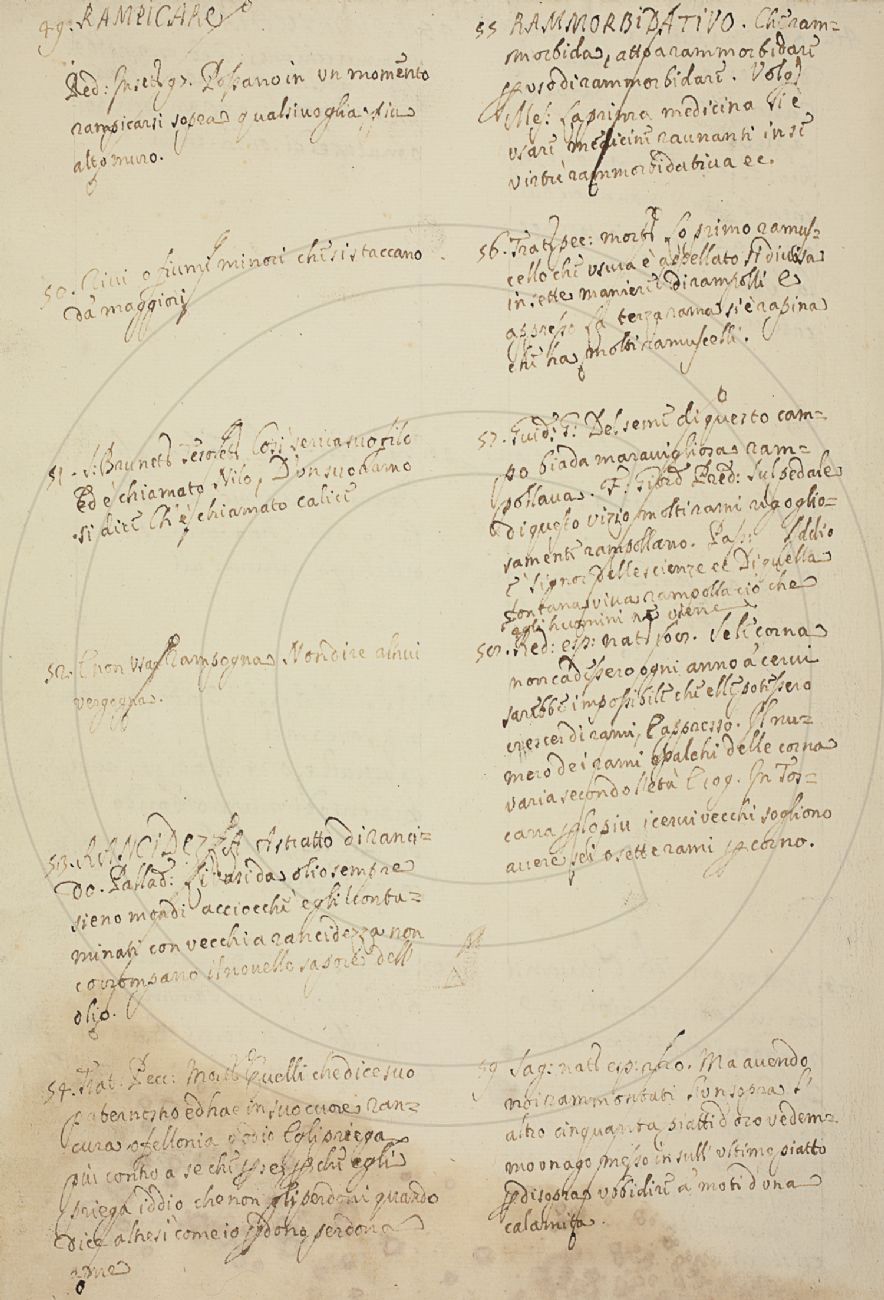 49. RAMPICARE
Red: Ins: 97. Possano in un momento
rampicarsi sopra qualsivoglia più
alto muro.
50. Rivi o fiumi minori che si staccano
da maggiori
51. S: Brunett: Tesorett: Così serva suo filo
Ed è chiamato Nilo, D'un suo ramo
si dice Ch'è chiamato calice
52. E non usar Rampogna Non dire altrui
vergogna.
53. RANCIDEZZA Astratto di ranci=
do. Pallad: olio sempre
sieno mondi acciocchè egli contu=
minati con vecchia rancidezza non
corrompano il novello sapore dell
olio.
54. Trat: Pecc: Mort: Quelli che dice suo
paternostro ed hae in suo cuore ran=
cura o fellonia o odio Egli priega
più contro a se che per se, perchè egli
priega iddio che non gli perdoni quando
dice altresì come io perdono perdona
a me
55 RAMMORBIDATIVO. Che ram=
morbida, atto a rammorbidare
per uso di rammorbidare. Volg:
Mes: La prima medicina si è
usare medicine raunanti in se
virtù rammorbidativa ec.
56. Trat: pec: mort: Lo primo ramus=
cello che usura è appellato si divisa
in sette maniere di rampolli E
appresso La terza rama si è rapina
che ha molti ramuscelli.
57. Guid: G: Del seme di questo cam=
po biada maravigliosa ram=
pollava. F: Giord Pred: Sul pedale
di questo vizio molti rami rigoglio=
samente rampollano. Pass: Iddio
è signor delle scienze ec Di quella
fontana viva rampolla ciò che
agli huomini ne viene.
58. Red: esp: nat: Se le corna
non cadessero ogni anno a' cervi
sarebbe impossibile che elle potessero
crescer di rami, E appresso. Il nu=
mero dei rami o palchi delle corna
varia secondo l'età E 109. In Tos=
cana per lo più i cervi vecchi sogliono
avere sei o sette rami per corno.
59 Sag: nat: esp: Ma avendo
noi rammontati l'un sopra l'
altro cinquanta piatti d'oro vedem=
mo un ago messo in sull' ultimo piatto
per disopra ubbidire a' moti d'una
calamita.